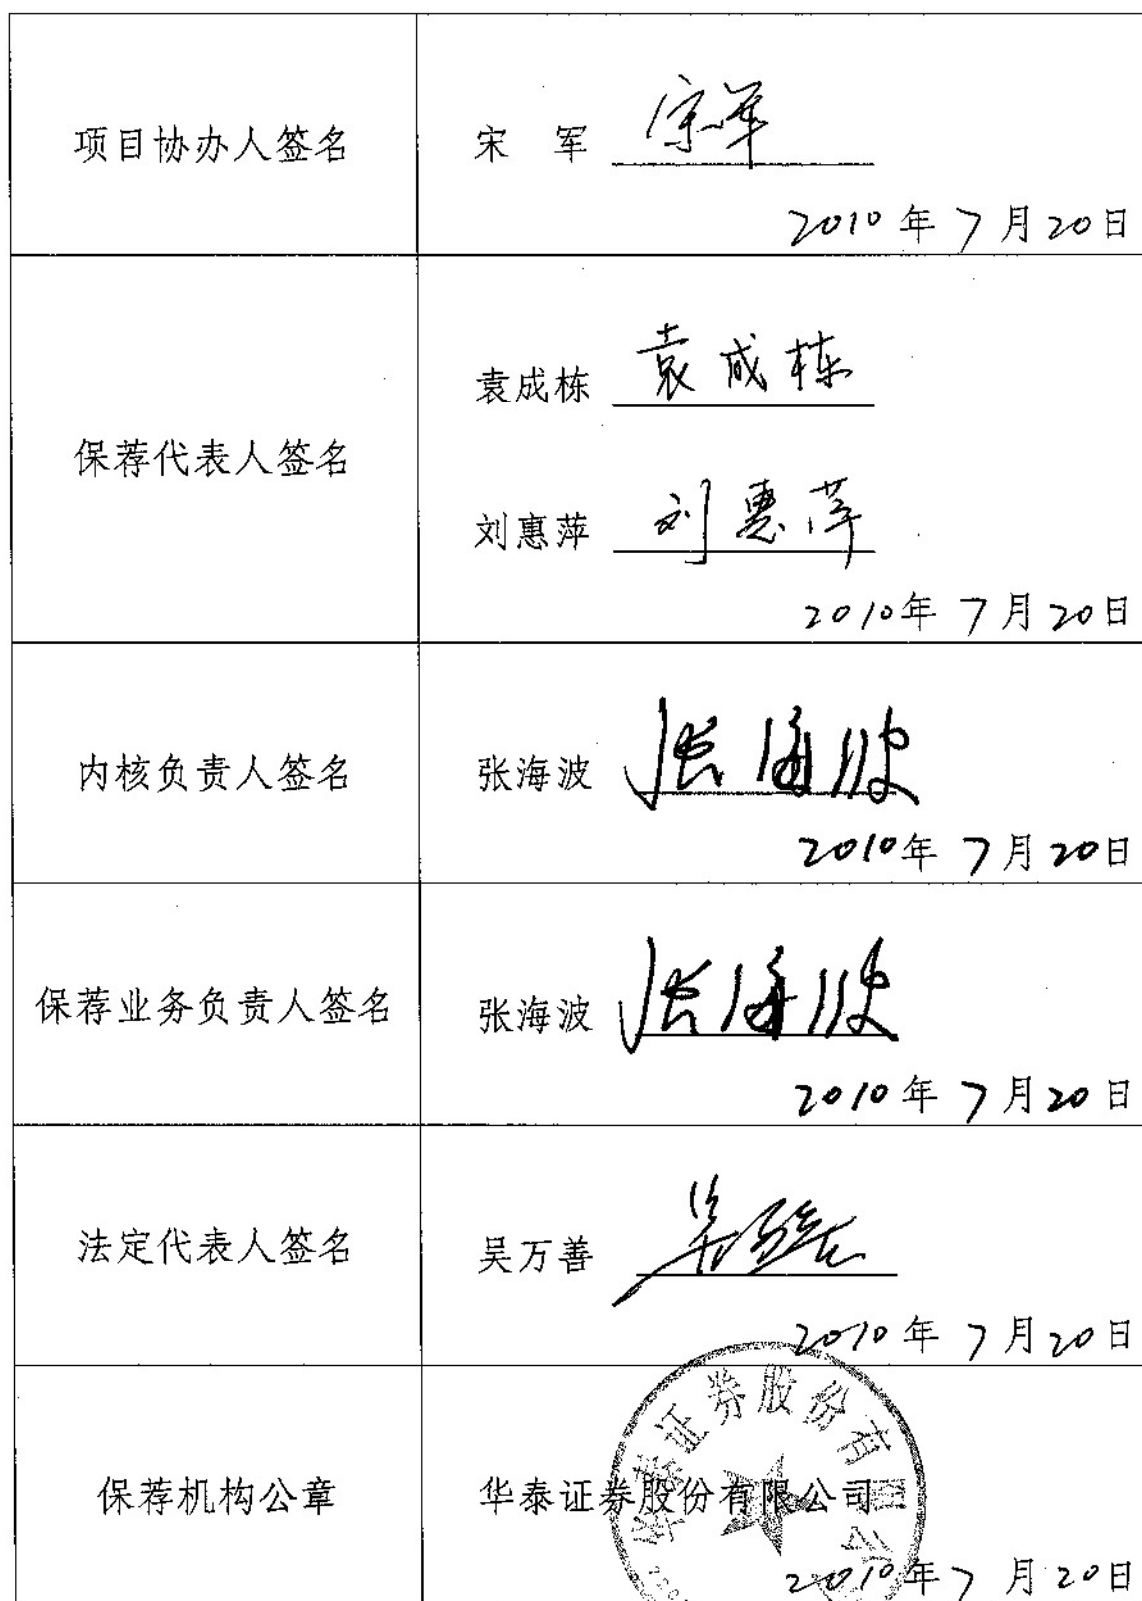 项目协办人签名
宋 军 宋军
2010年7月20日
保荐代表人签名
袁成栋 袁成栋
刘惠萍 刘惠萍
2010年7月20日
内核负责人签名
张海波 张海波
2010年7月20日
保荐业务负责人签名
张海波 张海波
2010年7月20日
法定代表人签名
吴万善 吴万善
2010年7月20日
保荐机构公章
华泰证券股份有限公司
华泰证券股份有限公
2010年7月20日